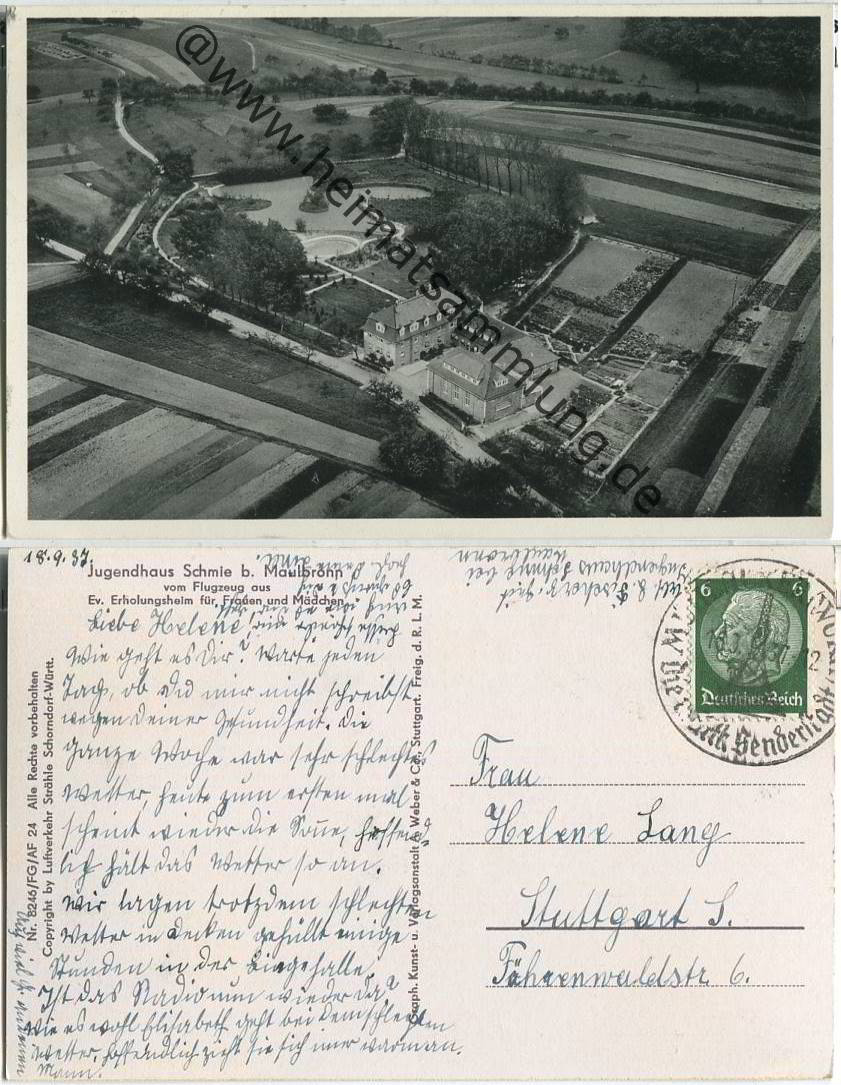 @www.heimatsammlung.de
18.9.37
Jugendhaus Schmie b. Maulbronn
vom Flugzeug aus
Ev. Erholungsheim für Frauen und Mädchen
Liebe Helene!
Wie geht es Dir? Warte jeden
Tag, ob Du mir nicht schreibst
wegen Deiner Gesundheit. Die
ganze Woche war sehr schlechtes
Wetter, heute zum ersten mal
scheint wieder die Sonne, hoffent-
lich hält das Wetter so an.
Wir lagen trotzdem schlechten
Wetter in Decken gehüllt einige
Stunden in der Liegehalle.
Ist das Radio nun wieder da?
Wie es wohl Elisabeth geht bei dem schlechten
Wetter. Hoffentlich zieht sie sich immer warm an.
Mann.
Nr. 8246/FG/AF 24 Alle Rechte vorbehalten
Copyright by Luftverkehr Strähle Schorndorf-Württ.
Graph. Kunst- u. Verlagsanstalt Weber & Co., Stuttgart. Freig. d. R. L. M.
Jugendhaus Schmie bei
Maulbronn
6
6
Deutsches Reich
12
Frau
Helene Lang
Stuttgart S.
Föhrenwaldstr 6.